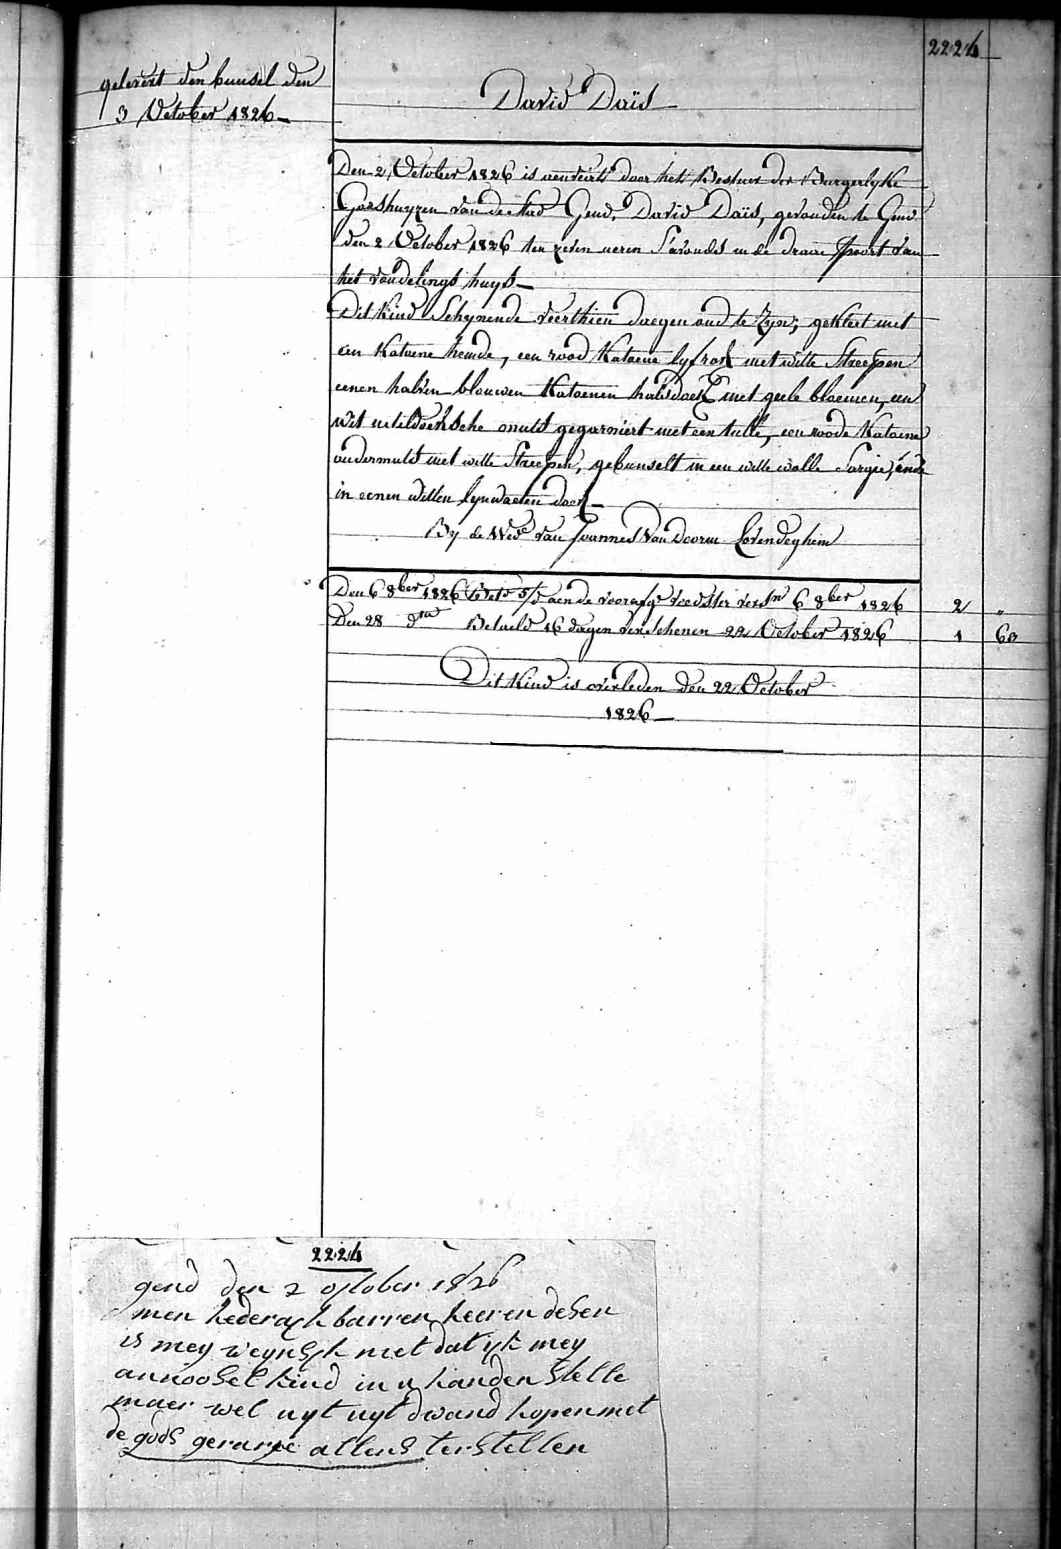 2224
gelevert den bunsel den
3 October 1826
David Daïs
Den 2 October 1826 is aenveirt door het Bestuer der Burgerlyke
Godshuyzen van de stad Gend, David Daïs, gevonden te Gend
den 2 October 1826 ten zeven ueren s'avonds in de draeijpoort van
het vondelings huys
Dit Kind Schynende veerthien daegen oud te Zyn; gekleet met
een Katoene hemde, een rood Katoene lyfrok met witte Streepen
eenen halven blouwen Katoenen halsdoek met geele bloemen, een
wit neteldoeksche muts gegarniert met een tulle, een roode Katoene
ondermuts met witte Streepen, gebunselt in een witte wolle Sargie, ende
in eenen witten lynwaeten doek
By de Wed.e van Joannes Van Doorne Lovendeghem
Den 6 8ber 1826 aen de voorsz voedster 6 8ber 1826 2 "
Den 28 dto Betaeld 16 dagen verschenen 22 October 1826 1 60
Dit Kind is overleden Den 22 October
1826
2224
gend den 2 october 1826
men hederagh barren heeren desen
is mey weynsyk niet dat yk mey
annoosel kind in u handen stelle
maer wel uyt uyt dwand hopen met
de gods gerarge allens ter stellen